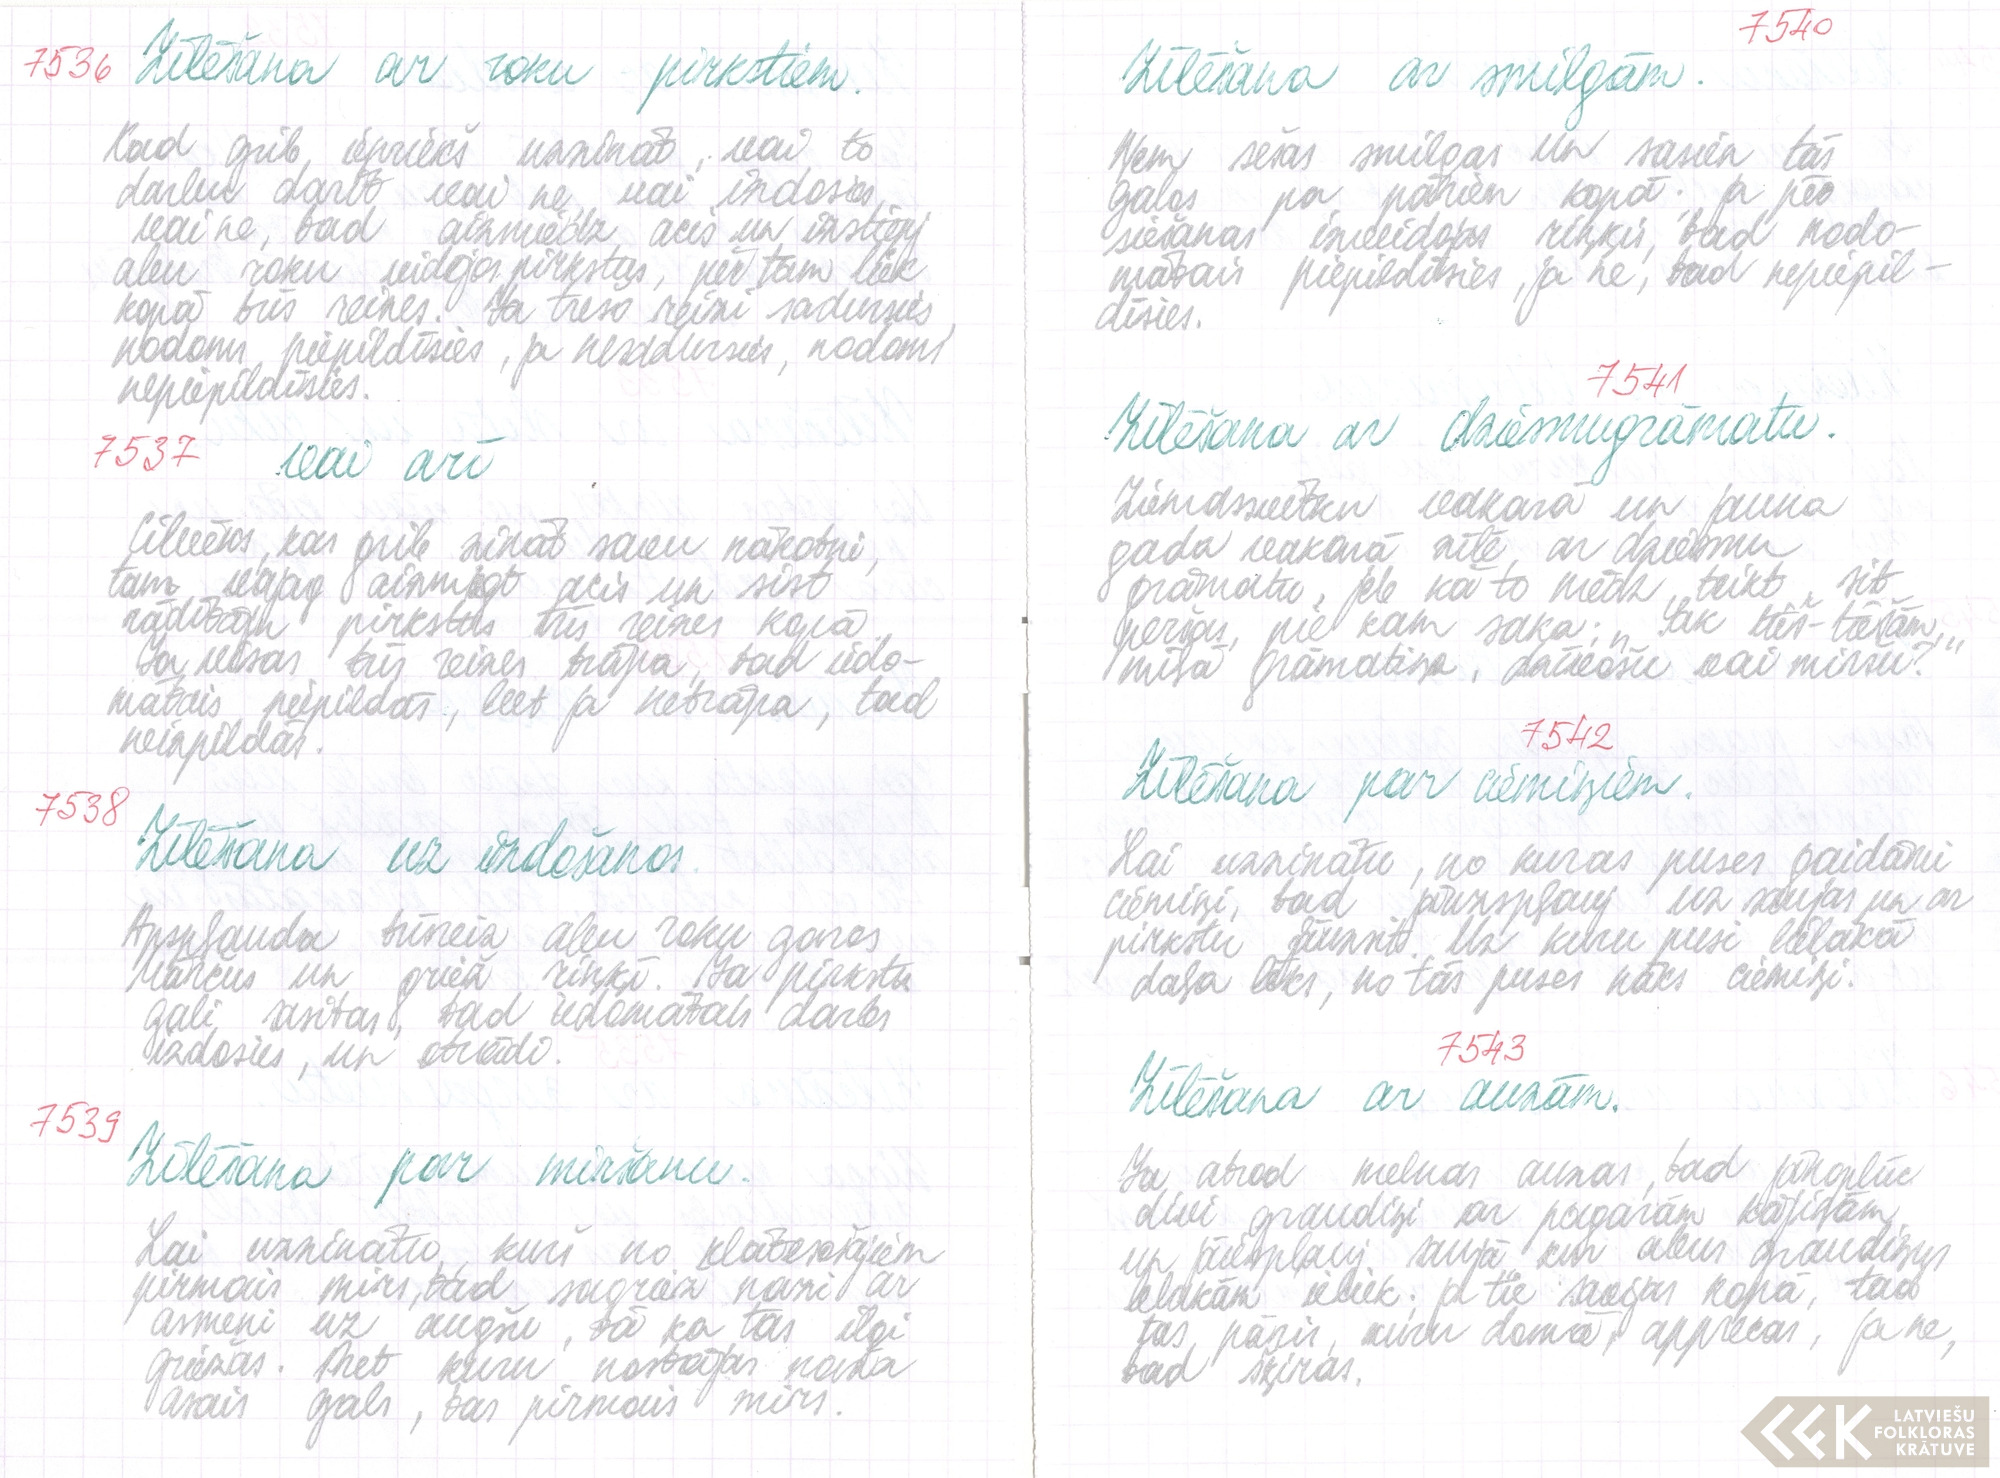 7536 Zīlēšana ar roku pirkstiem.
Kad grib iepriekš uzzināt, vai to
darbu darīt vai ne, vai izdosies,
vai ne, tad aizmiedz acis un izstiepj
abu roku vidējos pirkstus, pēc tam liek
kopā trīs reizes. Ja trešo reizi sadursies
nodoms piepildīsies, ja nesadursies, nodoms
nepiepildīsies.
7537 vai arī
Cilvēks, kas grib zināt savu nākotni,
tam vajag aizmigt acis un sist
rādītāju pirkstus trīs reizes kopā.
Ja visas trīs reizes trāpa, tad iedo-
mātais piepildās, bet ja netrāpa, tad
neizpildās.
7538
Zīlēšana uz izdošanos.
Apspļauda trīsreiz abu roku garos
un griež riņķī. Ja pirkstu
gali sasitas, tad iedomātais darbs
izdosies, un otrādi.
7539
Zīlēšana par miršanu.
Lai uzzinātu, kurš no klātesošajiem
pirmais mirs, tad sagriež nazi ar
asmeni uz augšu, tā ka tas ilgi
griežas. Pret kuru nostājas naža
asais gals, tas pirmais mirs.
7540
Zīlēšana ar smilgām.
Ņem sešas smilgas un sasien tās
galos pa pāriem kopā. ja pēc
siešanas izveidojas riņķis, tad nodo-
mātais piepildīsies, ja ne, tad nepiepil-
dīsies.
7541
Zīlēšana ar dziesmugrāmatu.
Ziemassvētku vakarā un jauna
gada vakarā zīlē ar dziesmu
grāmatu, jeb kā to mēdz teikt „sit
peršas, pie kam saka: „Tik tēš-tēšām,
mīļā grāmatiņa, dzīvošu vai miršu?"
7542
Zīlēšana par ciemiņiem.
Lai uzzinātu, no kuras puses gaidāmi
ciemiņi, tad pāruzspļauj uz saujas un ar
pirkstu uzsit. Uz kuru pusi lielākā
daļa lēks, no tās puses nāks ciemiņi.
7543
Zīlēšana ar auzām.
Ja atrod melnas auzas, tad jānoplūc
divi graudiņi ar pagarām kājiņām
un jāiespļauj saujā, kur abus graudiņus
blakām ieliek. ja tie saejas kopā, tad
tas pāris, kuru domā, apprecas, ja ne,
tad šķiras.
LATVIEŠU
FOLKLORAS
KRĀTUVE